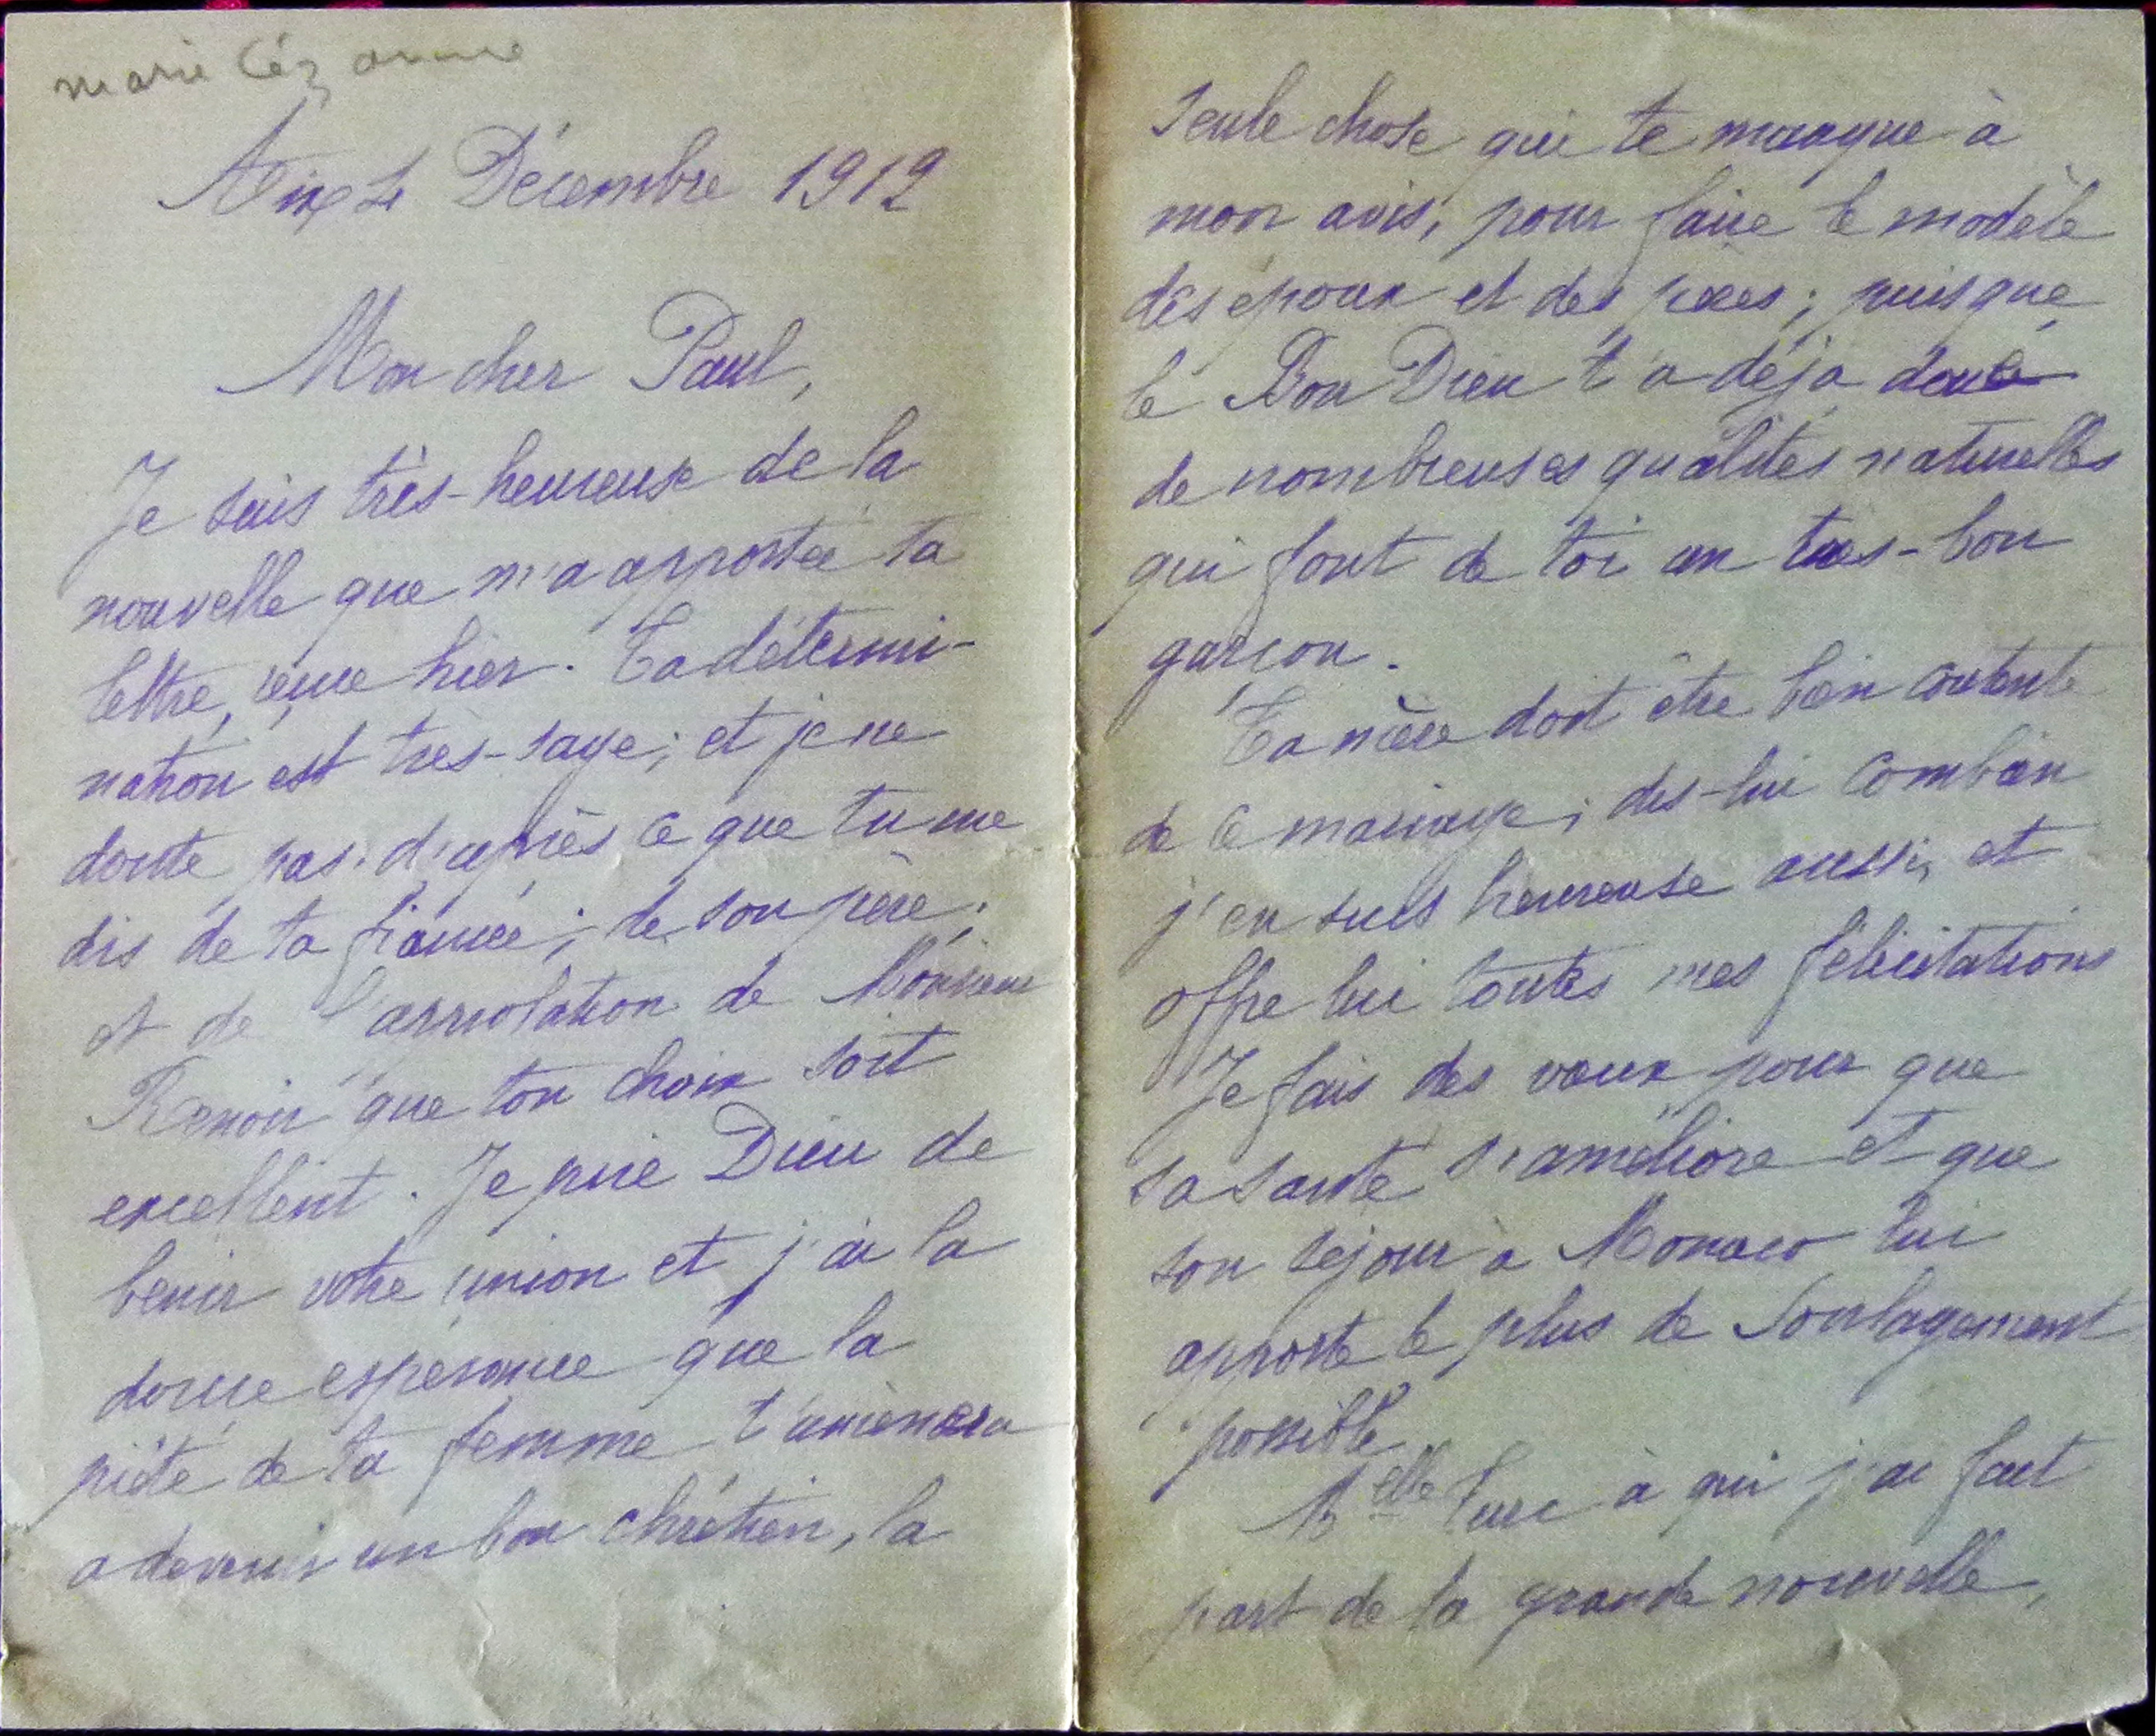 marie Cézanne
Aix le Décembre 1912
Mon cher Paul,
Je suis très-heureuse de la
nouvelle que m'a apportée ta
lettre, reçue hier. Ta détermi-
nation est très-sage; et je ne
doute pas, d'après ce que tu me
dis de ta fiancée; de son père;
et de l' de Monsieur
Renoir que ton choix soit
excellent. Je prie Dieu de
bénir votre union et j'ai la
douce espérance que la
piété de ta femme t'amènera
a devenir un bon chrétien, la
seule chose qui te manque à
mon avis, pour faire le modèle
des époux et des pères; puisque
le Bon Dieu t'a déja doué
de nombreuses qualités naturelles
qui font de toi un très-bon
garçon.
Ta mère doit être bien contente
de ce mariage; dis-lui combien
j'en suis heureuse aussi, et
offre lui toutes mes félicitations
Je fais des vœux pour que
sa santé s'améliore et que
son séjour à Monaco lui
apporte le plus de soulagement
possible
Melle à qui j'ai fait
part de la grande nouvelle,